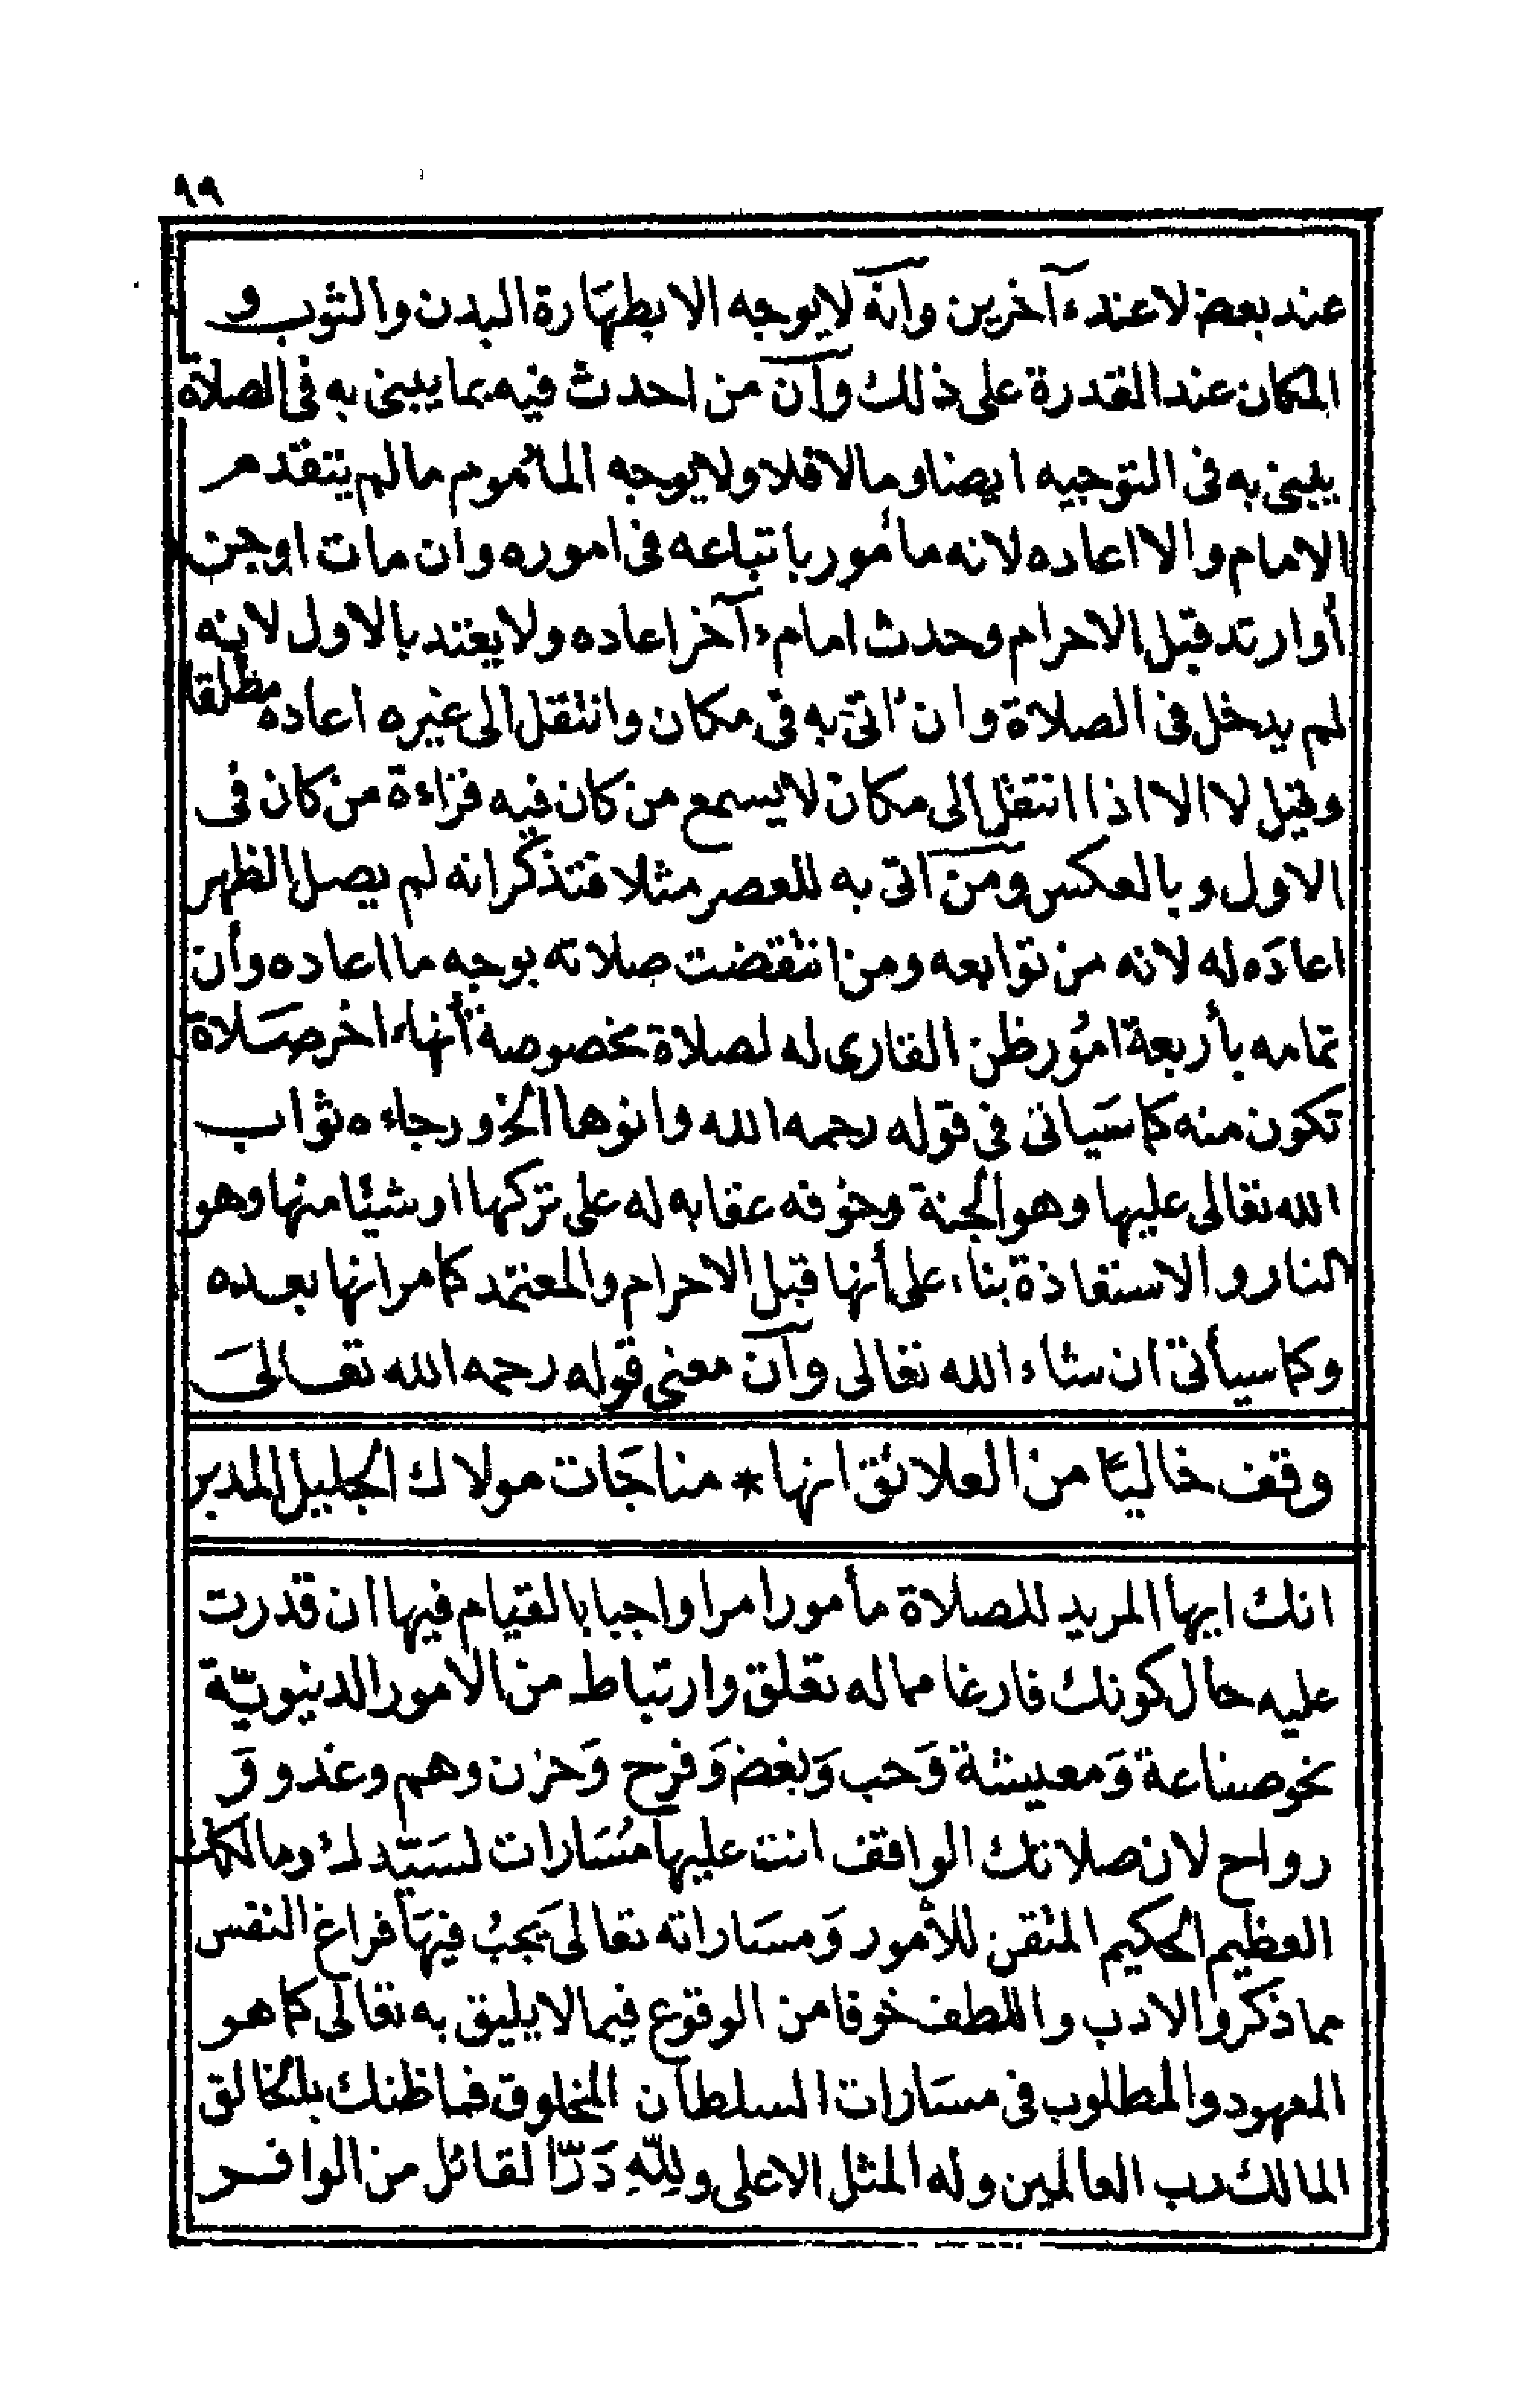 ٨٩
عند بعض لا عند ءآخرين وأنه لا يوجه الا بطهارة البدن والثوب و
المكان عند القدرة على ذلك وأن من احدث فيه بما يبنى به فى الصلاة
يبنى به فى التوجيه ايضا وما لا فلا ولا يوجه المأموم ما لم يتقدم
الامام والا اعاده لانه مأمور باتباعه فى اموره وان مات او جن
أو ارتد قبل الاحرام وحدث امام ءآخر اعاده ولا يعتد بالاول لانه
لم يدخل فى الصلاة وان اتى به فى مكان وانتقل الى غيره اعاده مطلقا
وقيل لا الا اذا انتقل الى مكان لا يسمع من كان فيه قراءة من كان فى
الاول وبالعكس ومن اتى به للعصر مثلا فتذكر انه لم يصل الظهر
اعاده له لانه من توابعه ومن انتقضت صلاته بوجه ما اعاده وأن
تمامه بأربعة امور ظن القارى له لصلاة مخصوصة أنها ءاخر صلاة
تكون منه كما سياتى فى قوله رحمه الله وانوها الخ ورجاءه ثواب
الله تعالى عليها وهو الجنة وخوفه عقابه له على تركها او شيئا منها وهو
النار والاستعاذة بناء على أنها قبل الاحرام والمعتمد كما مر انها بعده
وكما سيأتى ان شاء الله تعالى وأن معنى قوله رحمه الله تعالى
وقف خاليا من العلائق انها * مناجات مولاك الجليل المدبر
انك ايها المريد للصلاة مأمور امرا واجبا بالقيام فيها ان قدرت
عليه حال كونك فارغا مما له تعلق وارتباط من الامور الدنيويّة
نحو صناعة وَمعيشة وَحب وَبغض وَفرح وَحزن وهم وغدو وَ
رواح لان صلاتك الواقف انت عليها مُسَارات لسَيّدك ومالكك
العظيم الحكيم المتقن للأمور وَمسَاراته تعالى يَجبُ فيهَا فراغ النفس
مما ذكر والادب واللطف خوفا من الوقوع فيما لا يليق به تعالى كما هو
المعهود والمطلوب فى مسَارات السلطان المخلوق فما ظنك بالخالق
المالك رب العالمين وله المثل الاعلى ولِلّهِ دَرّ القائل من الوافر